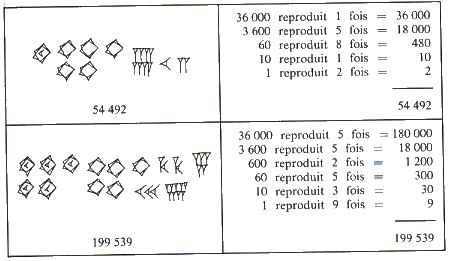 36 000 reproduit 1 fois = 36 000
3 600 reproduit 5 fois = 18 000
60 reproduit 8 fois = 480
10 reproduit 1 fois = 10
1 reproduit 2 fois = 2
54 492
54 492
36 000 reproduit 5 fois = 180 000
3 600 reproduit 5 fois = 18 000
600 reproduit 2 fois = 1 200
60 reproduit 5 fois = 300
10 reproduit 3 fois = 30
1 reproduit 9 fois = 9
199 539
199 539